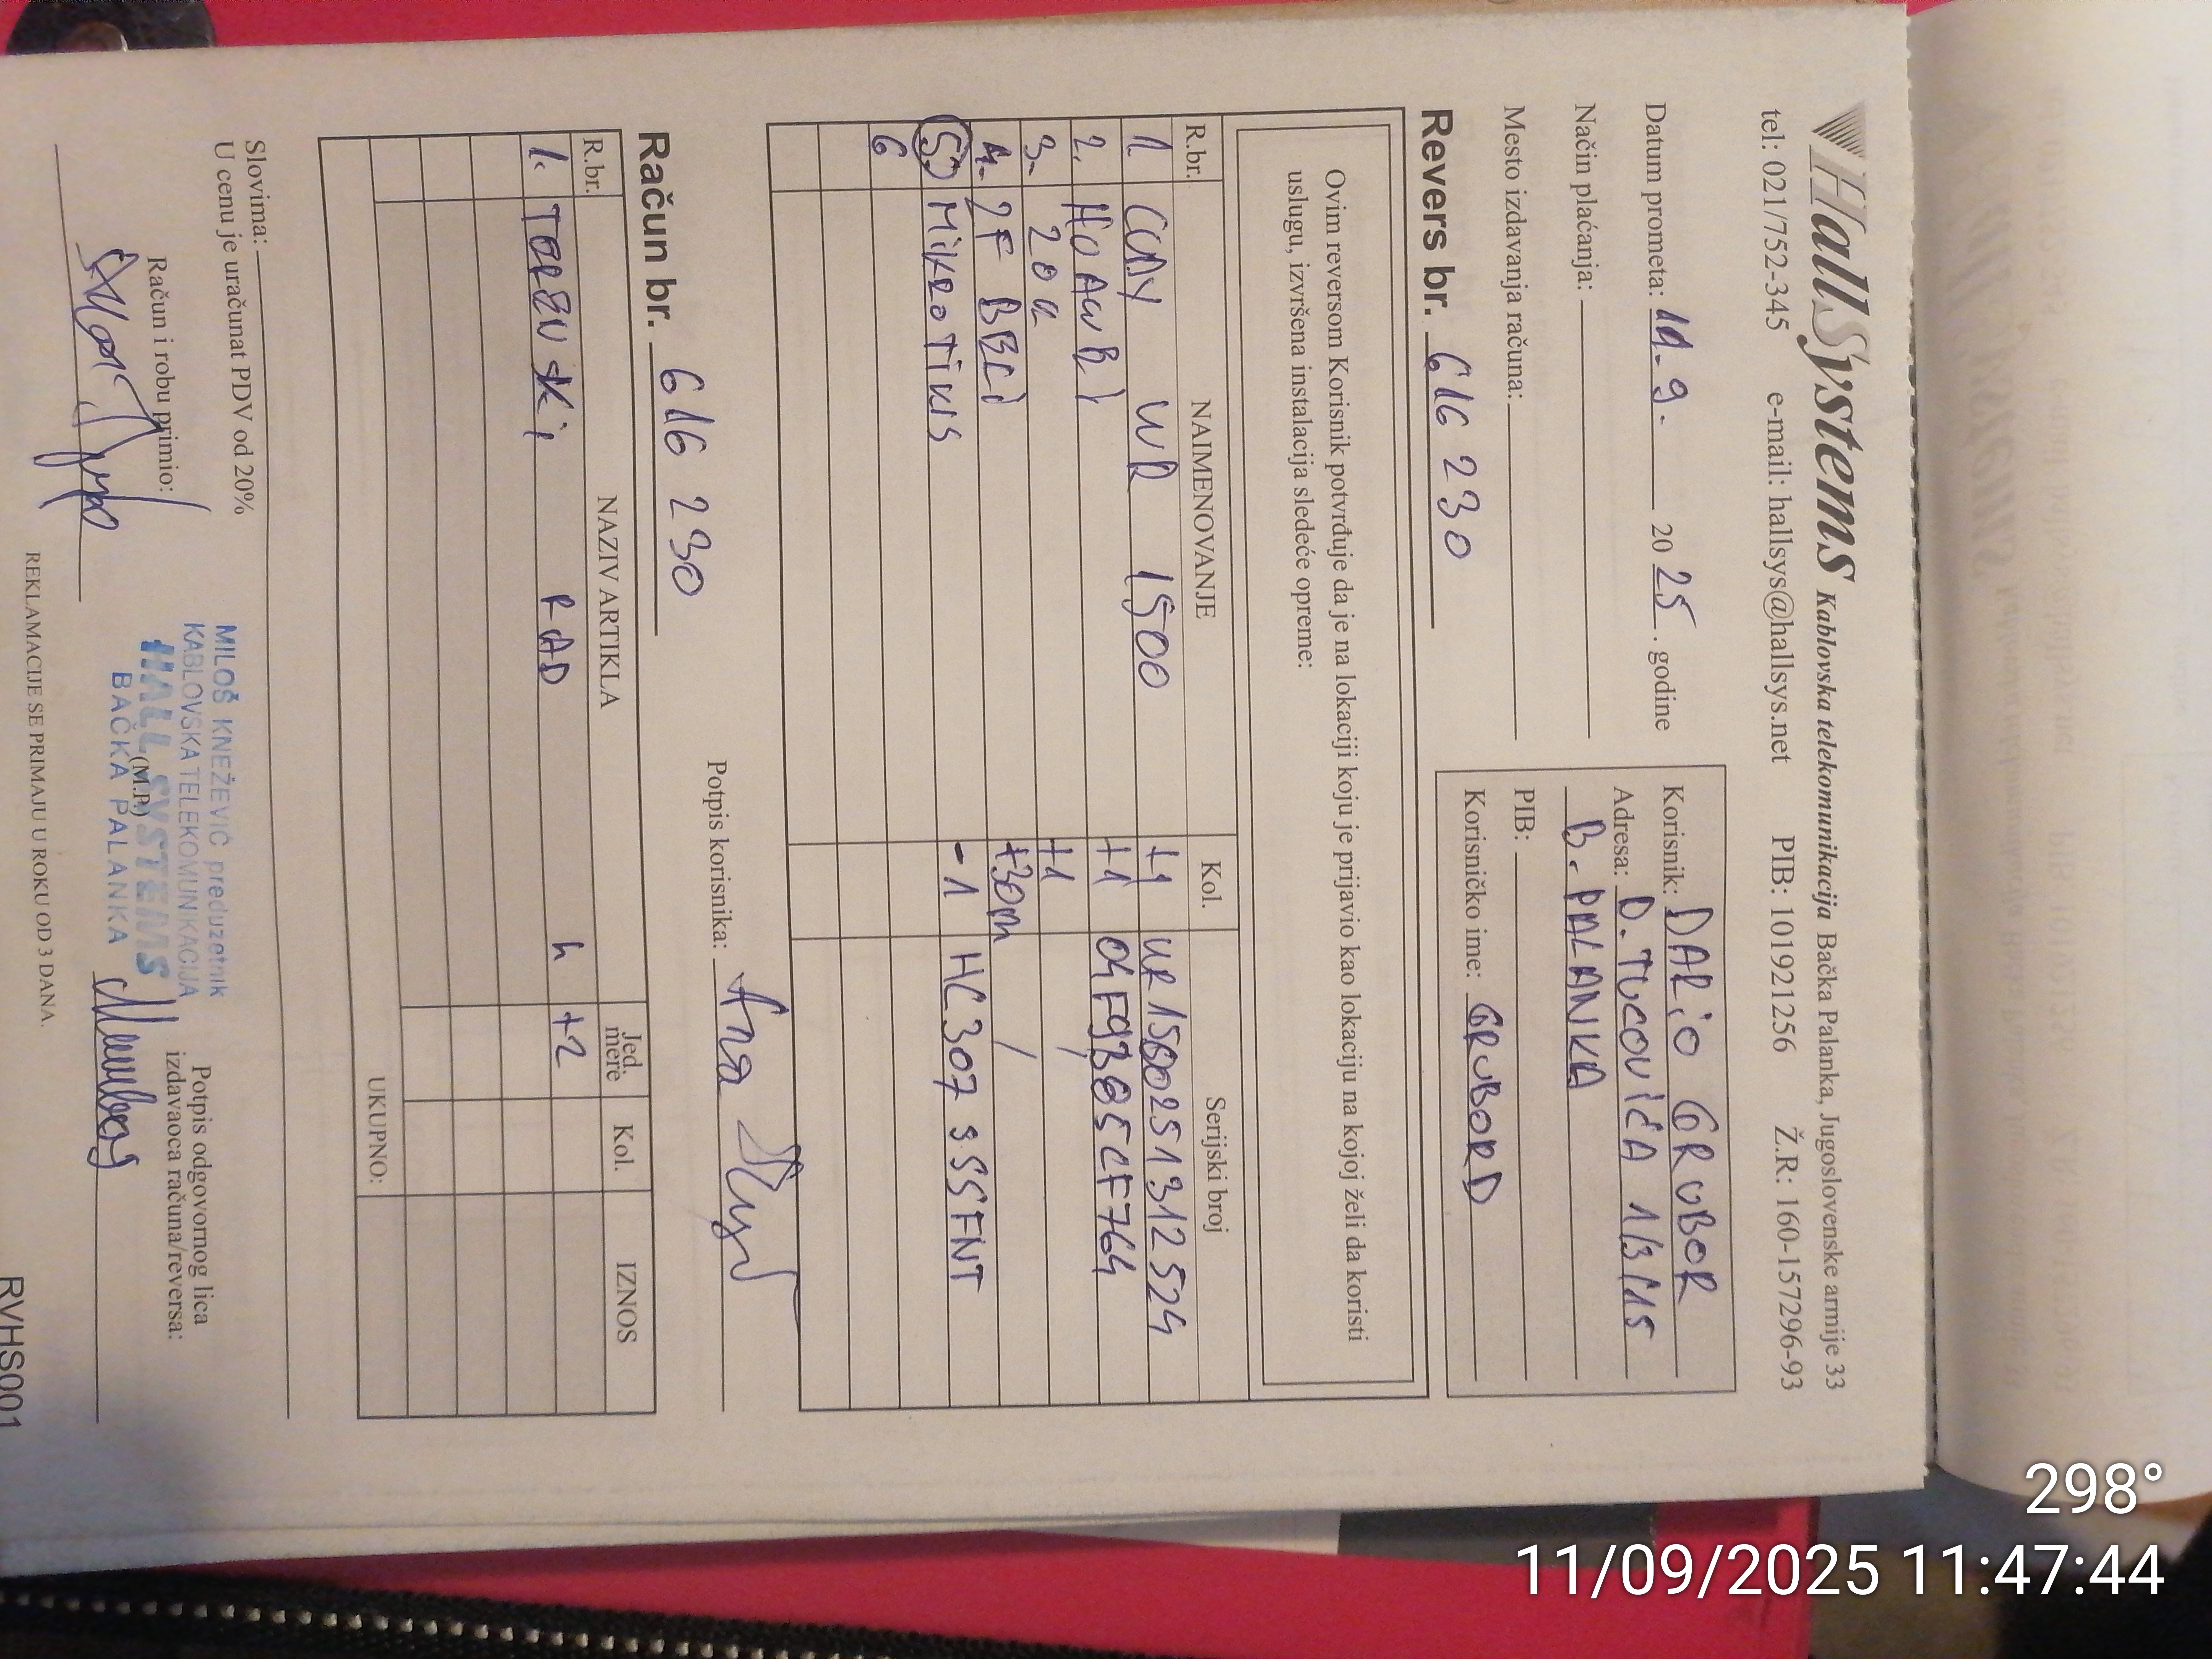 HallSystems Kablovska telekomunikacija Bačka Palanka, Jugoslovenske armije 33
tel: 021/752-345 e-mail: hallsys@hallsys.net PIB: 101921256 Ž.R: 160-157296-93
Datum prometa: 11.9. 2025. godine
Način plaćanja:
Mesto izdavanja računa:
Korisnik: DARiO GRUBOR
Adresa: D. TUCOVIĆA
B. PALANKA
PIB:
Korisničko ime: GRUBORD
Revers br. 616 230
Ovim reversom Korisnik potvrđuje da je na lokaciji koju je prijavio kao lokaciju na kojoj želi da koristi
uslugu, izvršena instalacija sledeće opreme:
R.br. NAIMENOVANJE Kol. Serijski broj
1. CUDY WR 1500 +1
2. +1
3. +1
4. 2F +30m /
5. MiKROTiK -1
6
Potpis korisnika:
Račun br. 616 230
R.br. NAZIV ARTIKLA Jed. mere Kol. IZNOS
1. RAD h +2
UKUPNO:
Slovima:
U cenu je uračunat PDV od 20%
Račun i robu primio:
MILOŠ KNEŽEVIĆ preduzetnik
KABLOVSKA TELEKOMUNIKACIJA
HALL SYSTEMS
(M.P.)
BAČKA PALANKA
Potpis odgovornog lica
izdavaoca računa/reversa:
REKLAMACIJE SE PRIMAJU U ROKU OD 3 DANA.
RVHS001
298°
11/09/2025 11:47:44